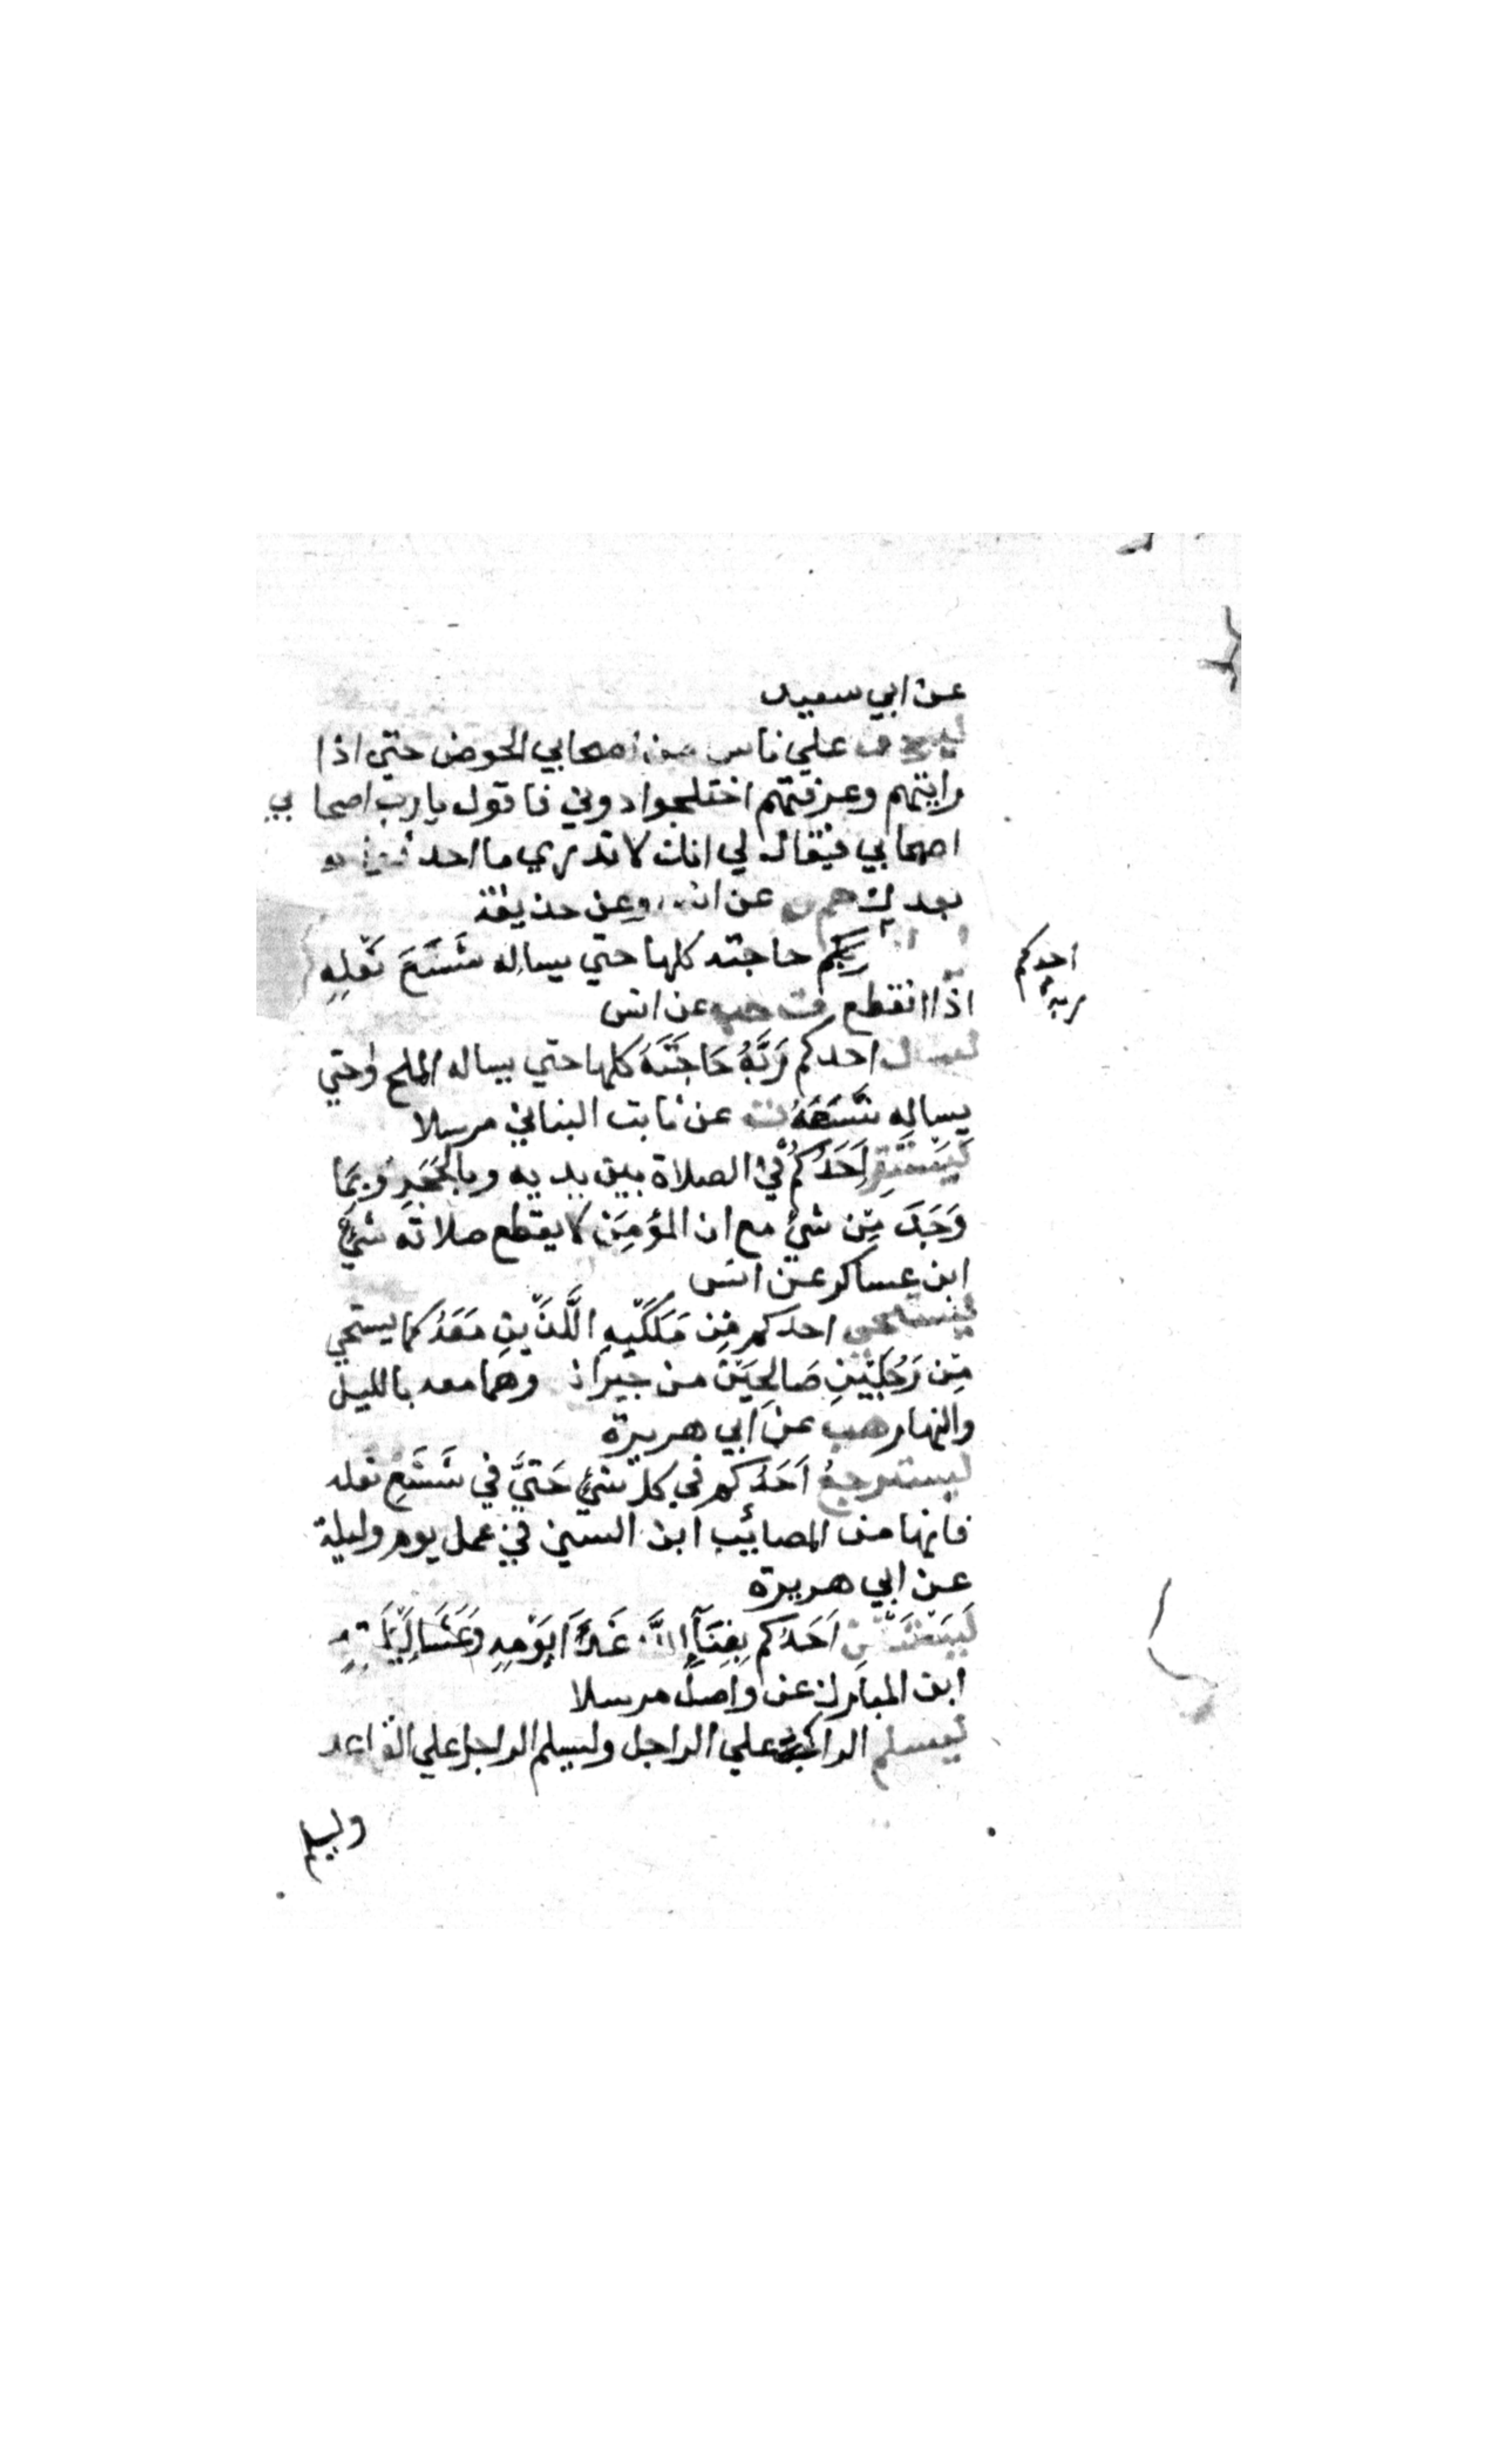 عن ابي سعيد
علي ناس من اصحابي الحوض حتي اذا
رايتهم وعرفتهم اختلجوا دوني فاقول يارب اصحابي
اصحابي فيقال لي انك لا تدري ما احدثوا
بعدك حم عن انس وعن حذيفة
احدكم
ربه
ربكم حاجته كلها حتي يساله شَسَعَ نَعْلِهِ
اذا انقطع ت حب عن انس
ليسال احدكم رَبَّهُ حَاجَتَهُ كلها حتي يساله الملح وحتي
يساله شَسَعَهُ ت عن ثابت البناني مرسلا
لَيَسْتَتِر اَحَدُكُمْ في الصلاة بين يديه وبالحَجَرِ وَبِمَا
وَجَدَ مِن شئ مع ان المؤمِنَ لا يقطع صلاته شئ
ابن عساكر عن انس
ليستحي احدكم مِن مَلَكَيْهِ اللَّذَيْنِ مَعَهُ كما يستحي
مِن رَجُلَيْنِ صَالِحَيْنِ من جيرانه وهما معه بالليل
والنهار هب عن ابي هريرة
ليسترجعُ اَحَدُكم في كل شئ حَتيَّ في شَسَعِ نعله
فانها من المصائب ابن السني في عمل يوم وليلة
عن ابي هريرة
اَحَدُكم بِغِنَآءِ اللَّهِ غَدَآءَ يَوْمِهِ وَعَشَاءَ لَيْلَتِهِ
ابن المبارك عن واصل مرسلا
ليسلم الراكب علي الراجل وليسلم الراجل علي القاعد
وليسلم